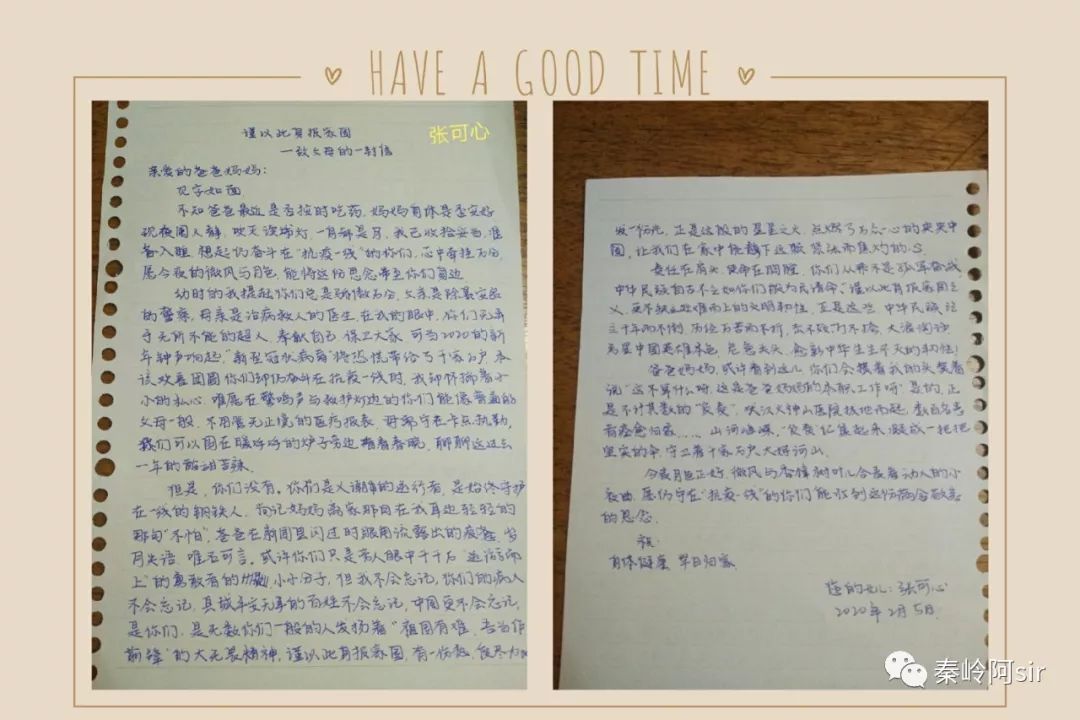 HAVE A GOOD TIME
谨以此身报家国
张可心
—致父母的一封信
亲爱的爸爸妈妈：
见字如面
不知爸爸最近是否按时吃药，妈妈身体是否安好
现夜阑人静，吹灭读书灯，一身都是月，我已收拾妥当，准
备入睡，想起仍奋斗在“抗疫一线”的你们，心中牵挂万分，
愿今夜的微风与月色，能将这份思念带至你们身边
幼时的我提起你们总是骄傲万分，父亲是除暴安良
的警察，母亲是治病救人的医生，在我的眼中，你们无异
于无所不能的超人，奉献自己，保卫大家，可当2020的新
年钟声响起，“新型冠状病毒”将恐慌带给万千家万户，本
该欢喜团圆你们却仍奋斗在抗疫一线时，我却怀揣着小
小的私心，难展在警鸣声与救护灯边的你们能像普通的
父母一般，不用管无止境的医疗报表，毋需守在卡点执勤，
我们可以围在暖烘烘的炉子旁边，看看春晚，聊聊这过去
一年的酸甜苦辣。
但是，你们没有，你们是义谢的逆行者，是始终守护
在一线的钢铁人，向记妈妈离家那日在我耳边轻轻的
那句“不怕”，爸爸在新闻里闪过时眼角流露出的疲惫，岁
月失语，唯石可言。或许你们只是旁人眼中千千万“逆流而
上”的勇敢者的小小分子，但我不会忘记，你们的病人
不会忘记，县城平安无事的百姓不会忘记，中国更不会忘记，
是你们，是无数你们一般的人发扬着“祖国有难，吾当作
前锋”的大无畏精神，谨以此身报家国，有一份热，
发一份光，正是这般的星星之火，点燃了万众一心的泱泱中
国，让我们在家中能静下这颗紧张而焦灼的心
责任在肩头，使命在胸膛，你们从来不是孤军奋战，
中华民族自古不乏如你们般为民请命、谨以此身报家国之
义，更不缺迎难而上的文明韧性，正是这些，中华民族
立千年而不倒，历经万苦而不折，
方显中国英雄本色，危急关头，愈彰中华生生不灭的韧性！
爸爸妈妈，或许看到这儿，你们会摸着我的头笑着
说“这不算什么呀，这是爸爸妈妈的本职工作呀”是的，正
是不计其数的“萤萤”，武汉火神山医院拔地而起，数百名患
者痊愈归家……山河峥嵘，“萤萤”汇集起来凝成一把把
坚实的伞，守卫着千家万户大好河山。
今晚月色正好，微风与香樟树叶儿合奏着动人的小
夜曲，愿仍守在“抗疫一线”的你们能收到这份饱含敬意
的思念。
祝：
身体健康 早日归家
您的女儿：张可心
2020年2月5日
秦岭阿sir